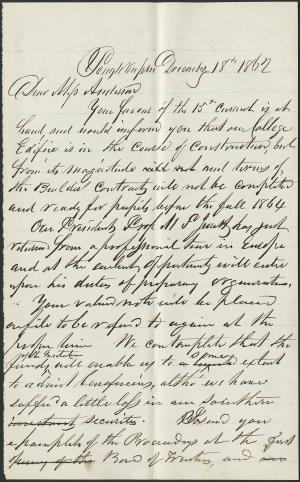 Poughkeepsie December 18th 1862
Dear Miss Anderson
Your favour of the 15th current is at
hand and would inform you that our College
Edifice is in the course of construction, but
from its magnitude and terms of
the Builders Contract, will not be completed
and ready for pupils before the fall 1864
Our President, Prof. M P Jewett, has just
returned from a professional tour in Europe
and at the earliest opportunity will enter
upon his duties of preparing organization.
Your valued note will be placed
on file to be referd to again at the
proper time. We contemplate that the
funds of the Institute will enable us to a some extent
to admit beneficiaries, altho' we have
suffer'd a little loss in our Southern
securities. I send you
a pamphlet of the Proceedings at the first
Board of Trustees, and